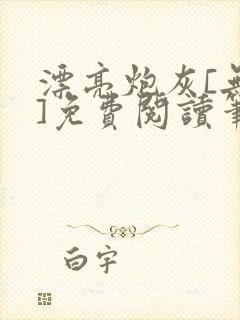 漂亮炮灰[無
]免費閱讀筆
白宇